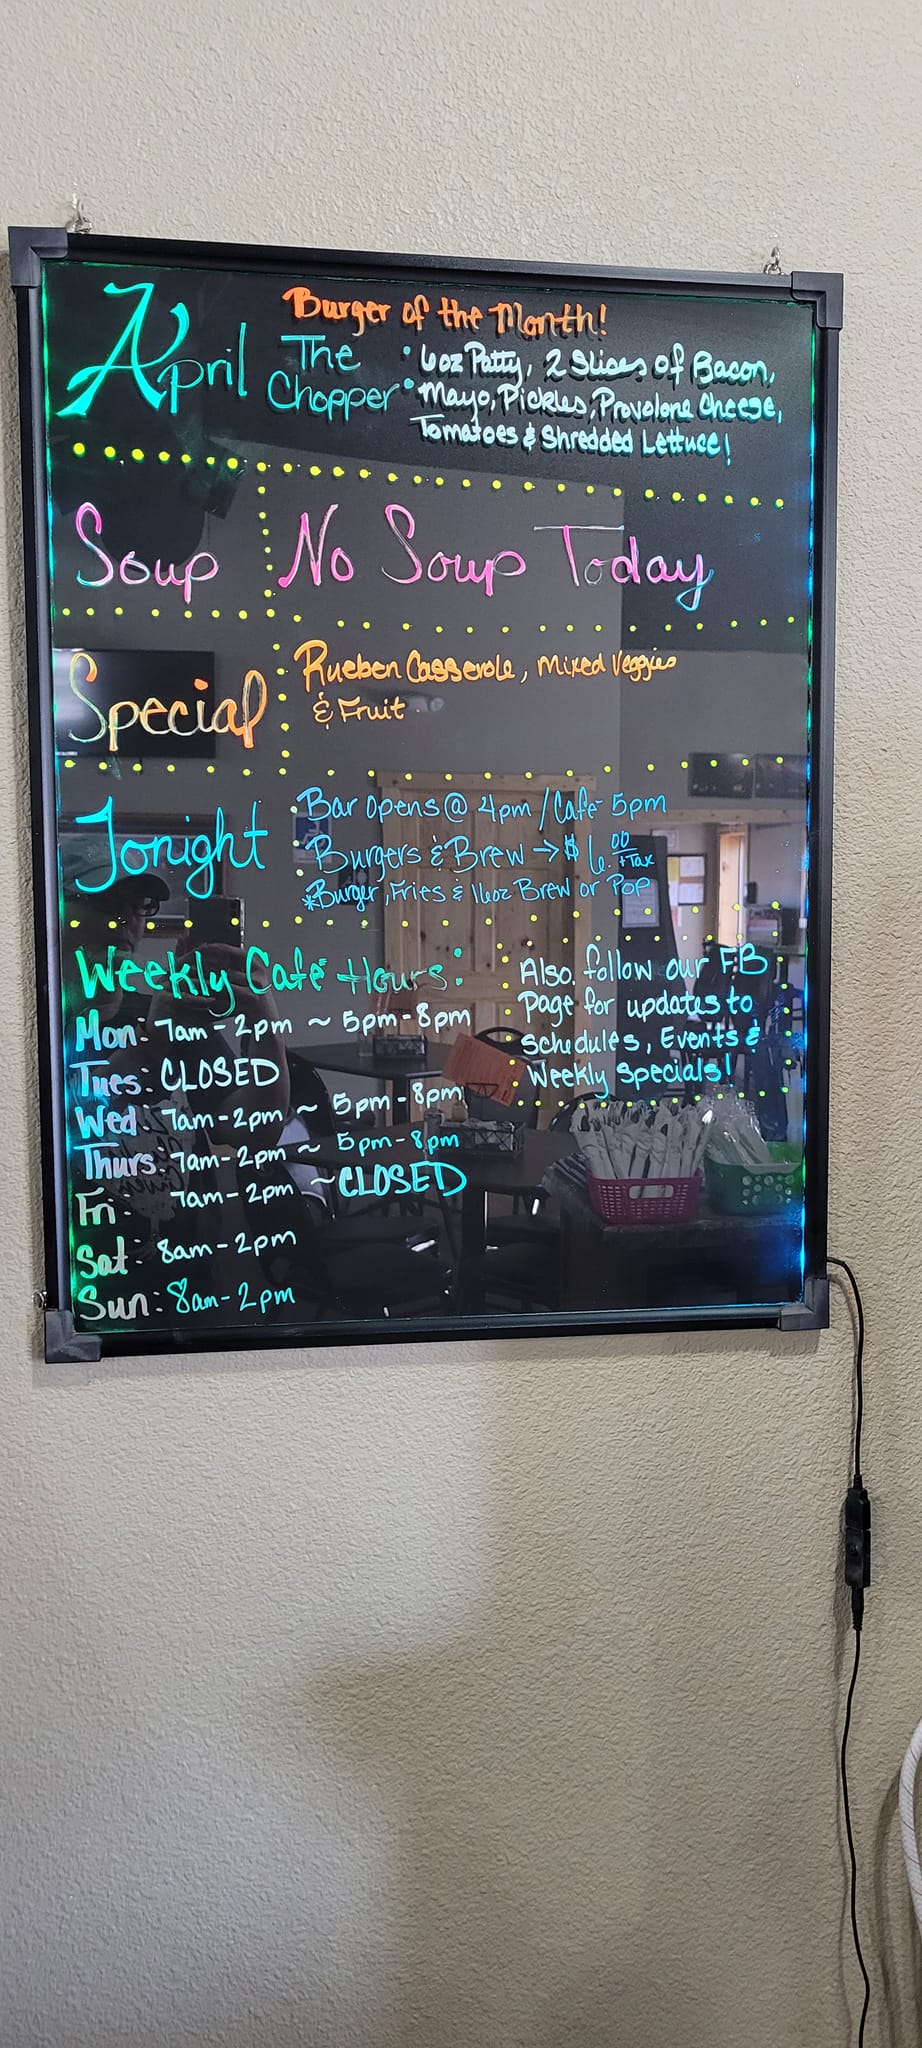 Burger of the Month!
April The Chopper • 6oz Patty, 2 Slices of Bacon,
• Mayo, Pickles, Provolone Cheese,
Tomatoes & Shredded Lettuce!
Soup No Soup Today
Special Rueben Casserole, Mixed Veggies
& Fruit
Tonight • Bar opens @ 4pm / Café 5pm
• Burgers & Brew → $6.00 + Tax
*Burger, Fries & 16oz Brew or Pop
Weekly Café Hours:
Mon: 7am - 2pm ~ 5pm - 8pm
Tues: CLOSED
Wed: 7am - 2pm ~ 5pm - 8pm
Thurs: 7am - 2pm ~ 5pm - 8pm
Fri: 7am - 2pm ~ CLOSED
Sat: 8am - 2pm
Sun: 8am - 2pm
Also, follow our FB
Page for updates to
schedules, Events &
Weekly Specials!